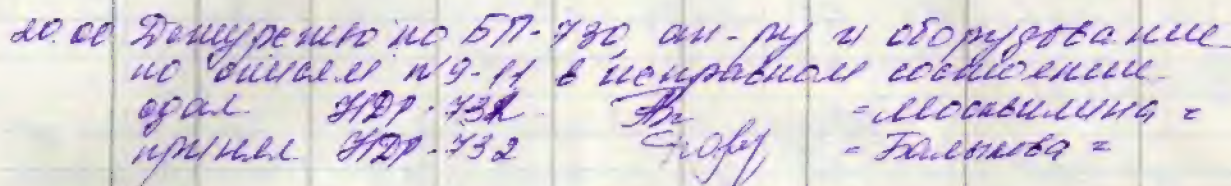 20.00 Дежурство по БП-730, ап-ру и оборудование
по описям №9-11 в исправном состоянии.
сдал НДР-732 =Москвилина=
принял НДР-732 =Балыкова=